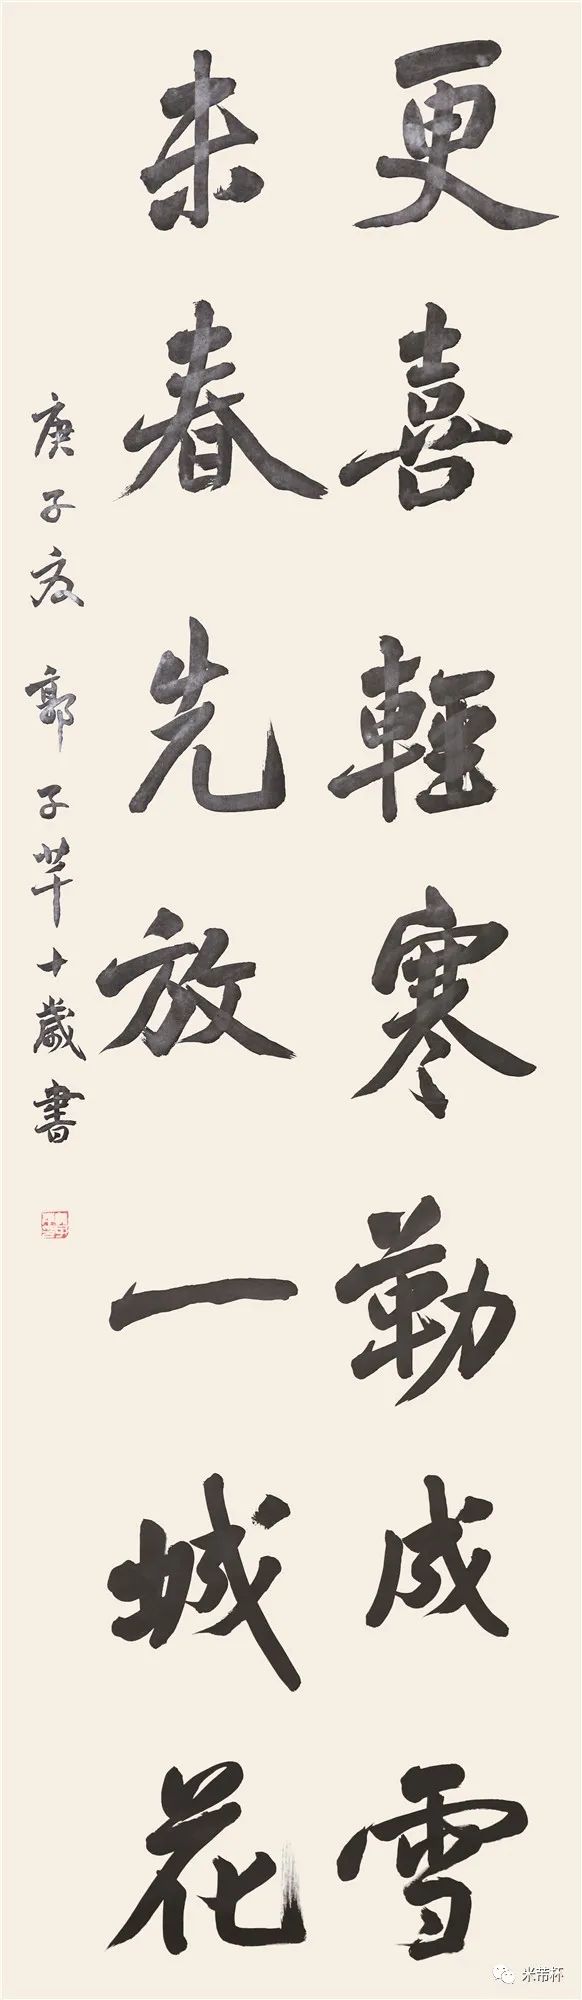 更喜輕寒勒成雪
未春先放一城花
庚子夏郭子芊十歲書
米芾杯